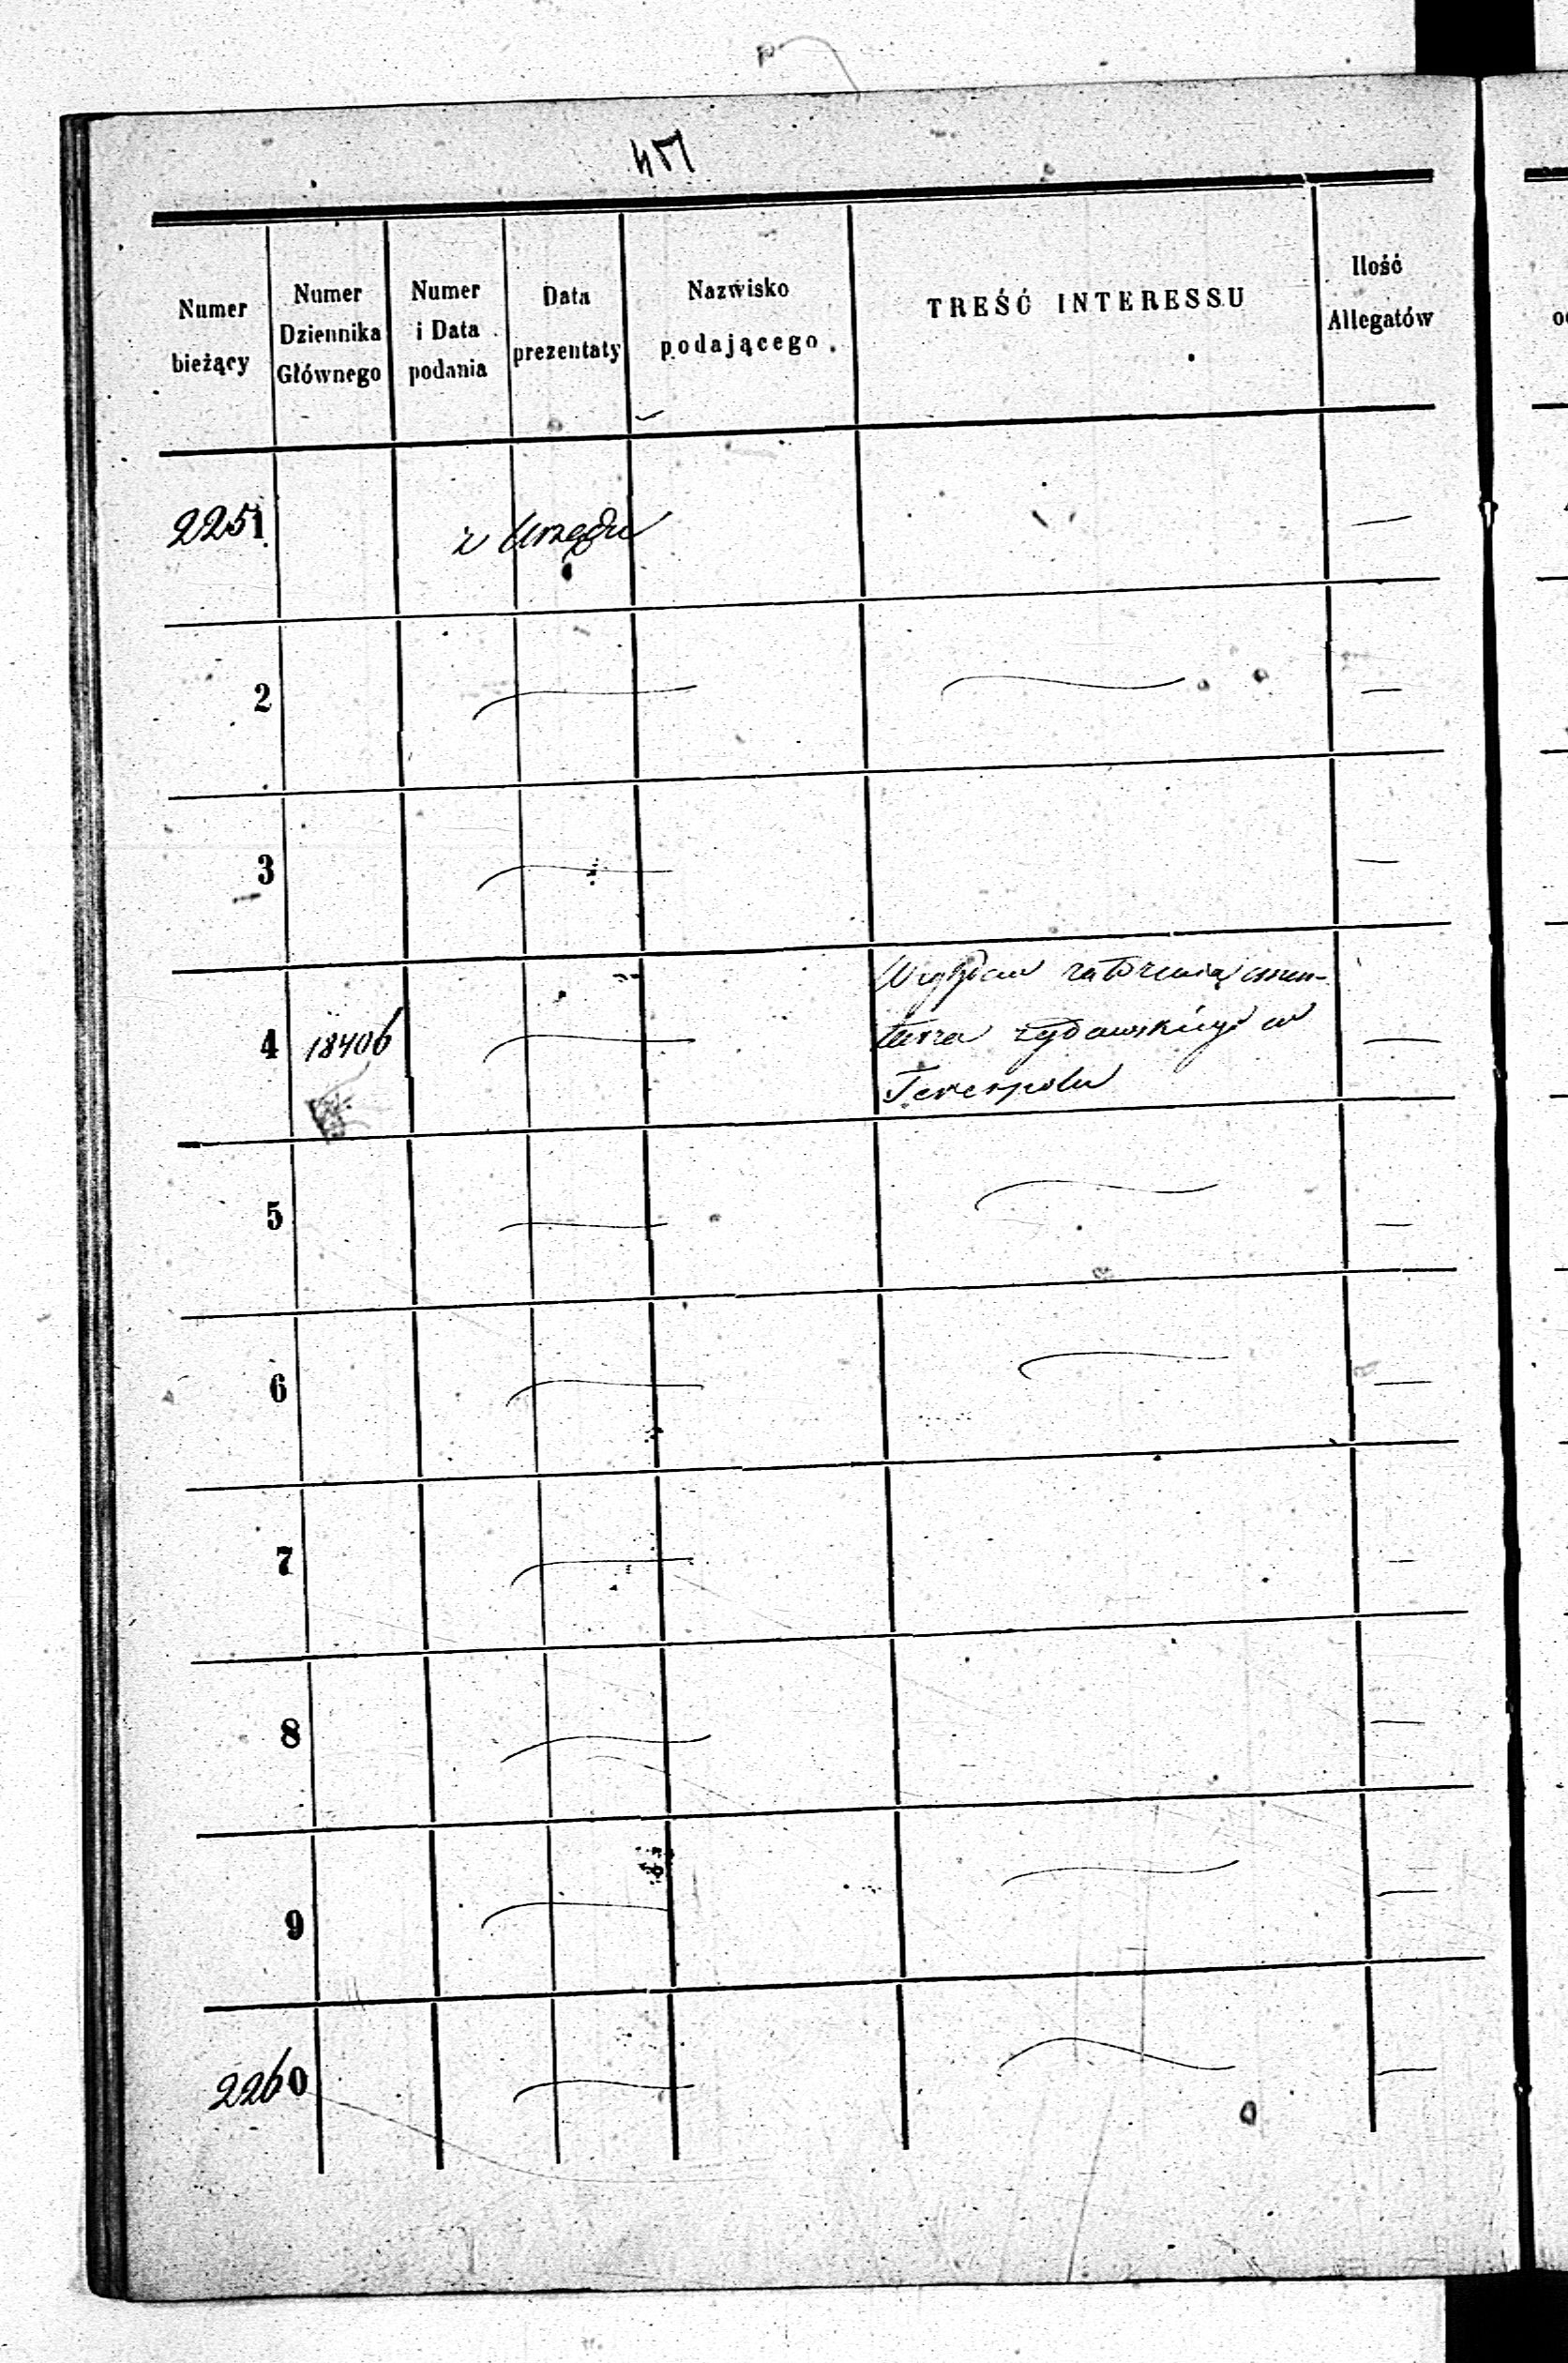 Numer bieżący
Numer Dziennika Głównego
Numer i Data podania
Data prezentaty
Nazwisko podającego
TREŚĆ INTERESSU
Ilość Allegatów
2251
z Urzędu
2
3
4
18406
Względem założenia cmen-
tarza żydowskiego w
Terespolu
5
6
7
8
9
2260